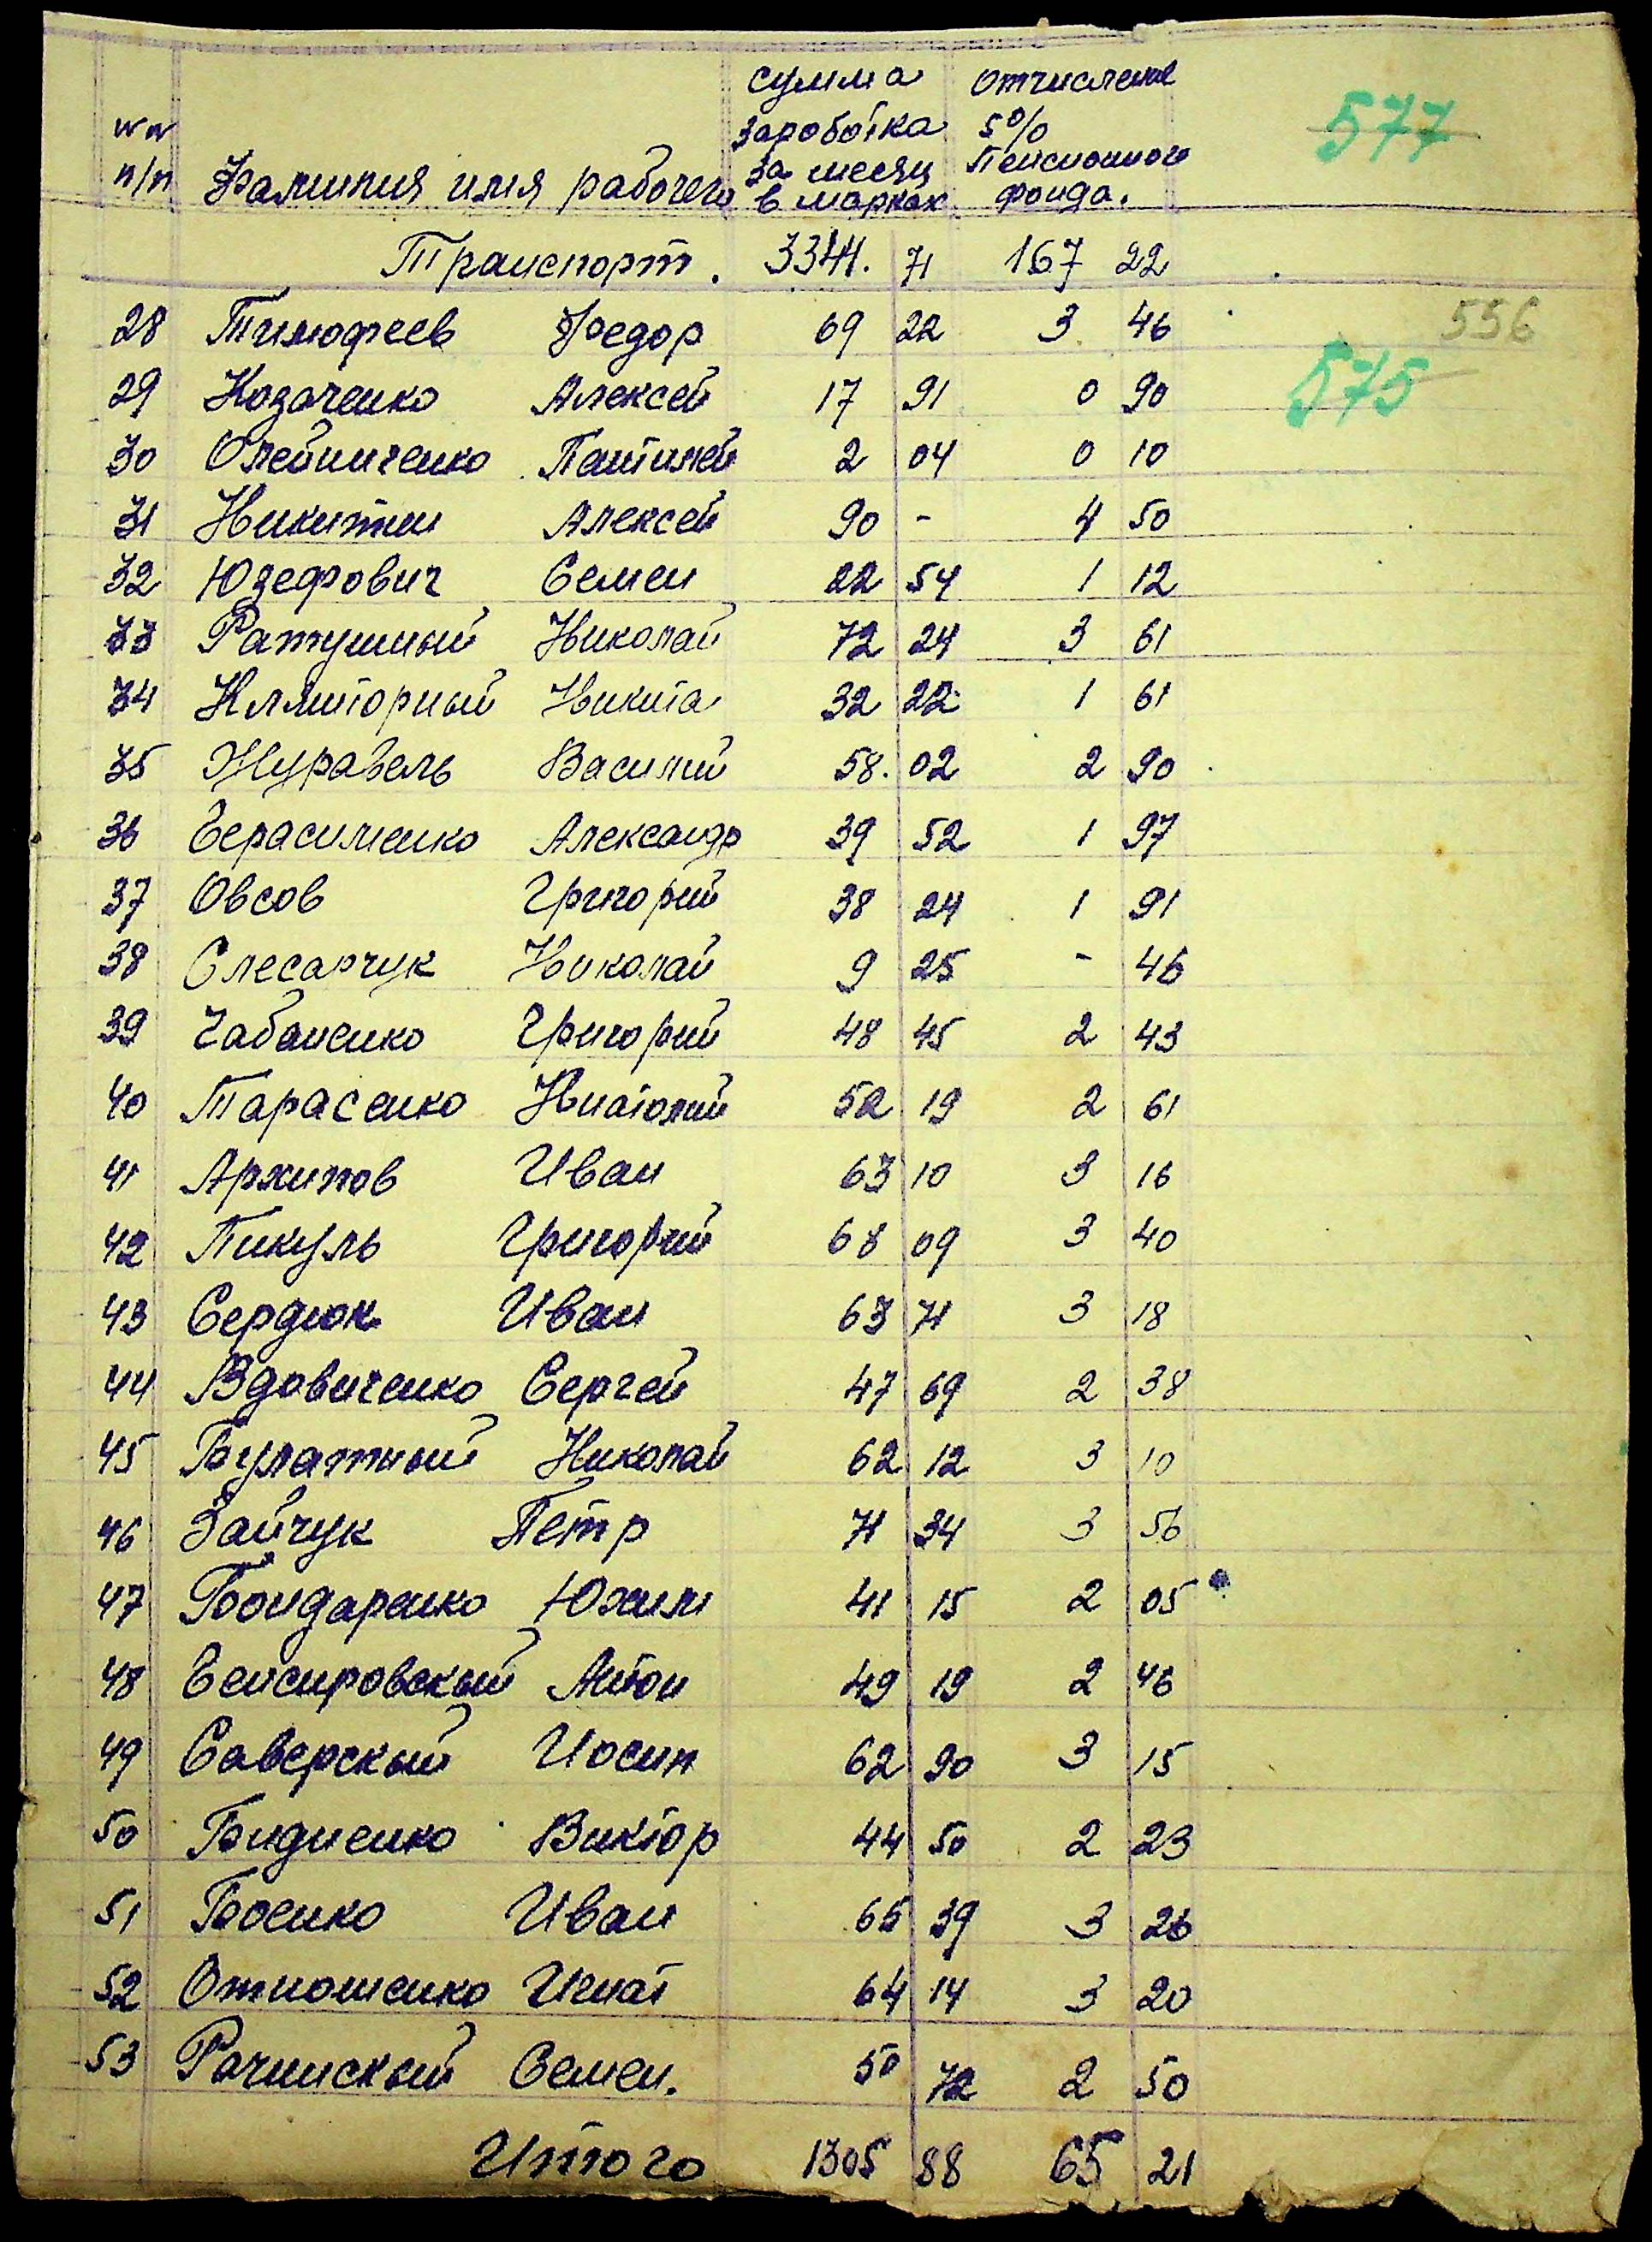 577
NN п/п Фамилия имя рабочего
сумма заробо́тка за месяц в марках
Отчисление 5% Пенсионного фонда.
Транспорт. 3344. 71 167 22
556
575
28 Тимофеев Федор 69 22 3 46
29 Козаченко Алексей 17 91 0 90
30 Олейниченко Пантилей 2 04 0 10
31 Никитин Алексей 90 - 4 50
32 Юзефович Семен 22 54 1 12
33 Ратушный Николай 72 24 3 61
34 Никита 32 22 1 61
35 Журавель Василий 58. 02 2 90
36 Герасименко Александр 39 52 1 97
37 Овсов Григорий 38 24 1 91
38 Слесарчук Николай 9 25 - 46
39 Чабаненко Григорий 48 45 2 43
40 Тарасенко 52 19 2 61
41 Архипов Иван 63 10 3 16
42 Пикуль Григорий 68 09 3 40
43 Сердюк Иван 63 71 3 18
44 Вдовиченко Сергей 47 69 2 38
45 Булатный Николай 62 12 3 10
46 Зайчук Петр 71 34 3 56
47 Бондаренко Юхим 41 15 2 05
48 Антон 49 19 2 46
49 Саверский Иосип 62 90 3 15
50 Бидненко Виктор 44 50 2 23
51 Боенко Иван 65 39 3 26
52 Отношенко Игнат 64 14 3 20
53 Рачинский Семен. 50 72 2 50
Итого 1305 88 65 21